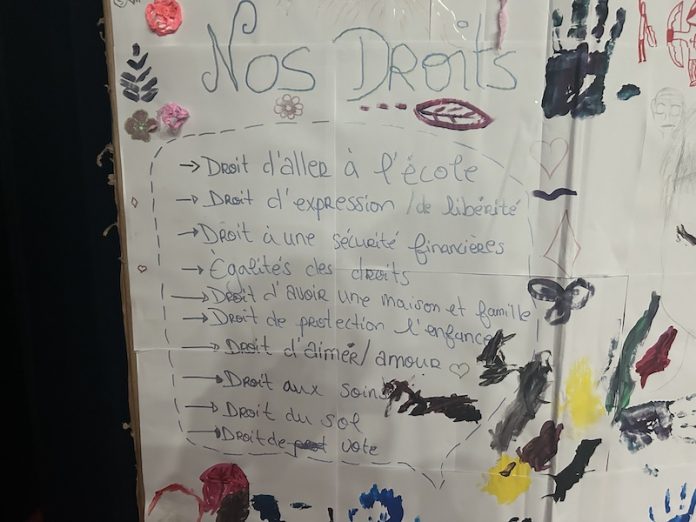 Nos Droits
→ Droit d'aller à l'école
→ Droit d'expression / de libérité
→ Droit à une sécurité financières
→ Égalités des droits
→ Droit d'avoir une maison et famille
→ Droit de protection l'enfance
→ Droit d'aimer / amour ♡
→ Droit aux soins
→ Droit du sol
→ Droit de vote